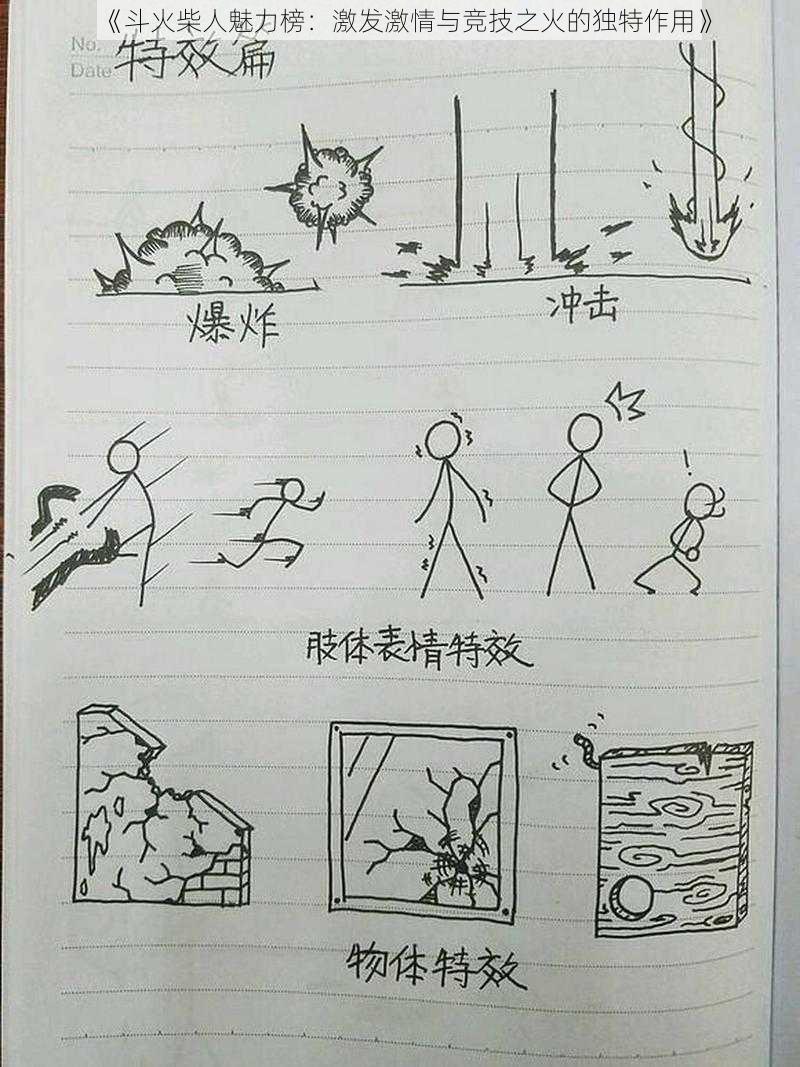 《斗火柴人魅力榜：激发激情与竞技之火的独特作用》
No.
Date
特效篇
爆炸
冲击
肢体表情特效
物体特效